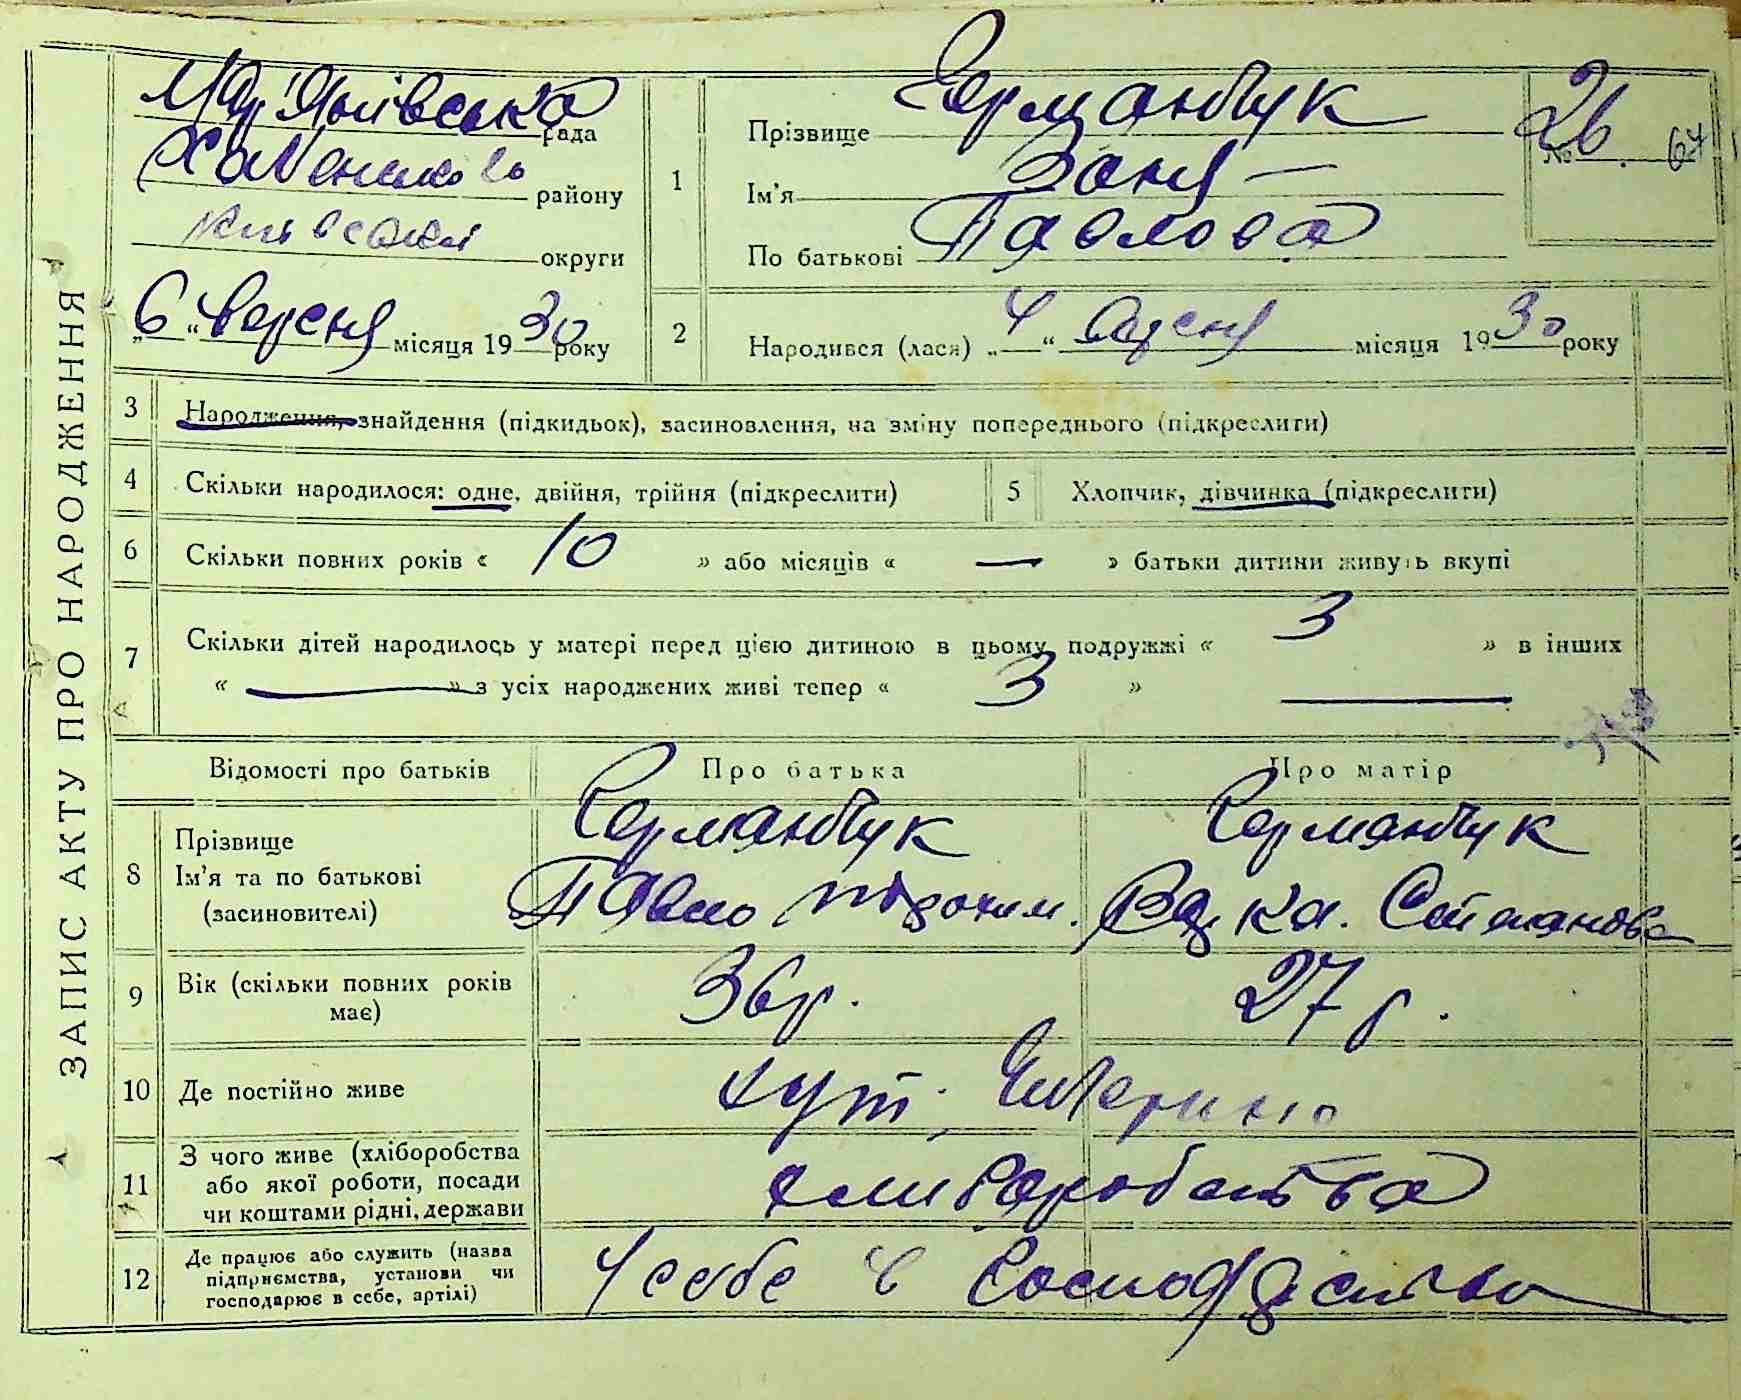 ЗАПИС АКТУ ПРО НАРОДЖЕННЯ
Мар'янівська рада
району
округи
„6“ вересня місяця 1930 року
1
Прізвище Германчук
Ім'я Зоня —
По батькові Павлова
№ 26. 64
2
Народився (лася) „4“ вересня місяця 1930 року
3 Народження, знайдення (підкидьок), засиновлення, на зміну попереднього (підкреслити)
4 Скільки народилося: одне, двійня, трійня (підкреслити)
5 Хлопчик, дівчинка (підкреслити)
6 Скільки повних років « 10 » або місяців « — » батьки дитини живуть вкупі
7 Скільки дітей народилось у матері перед цією дитиною в цьому подружжі « 3 » в інших
« — » з усіх народжених живі тепер « 3 » —
Відомості про батьків Про батька Про матір
8 Прізвище
Ім'я та по батькові
(засиновителі)
Германчук
Павло
Германчук
Степанова
9 Вік (скільки повних років має) 36 р. 27 р.
10 Де постійно живе хут.
11 З чого живе (хліборобства
або якої роботи, посади
чи коштами рідні, держави
хлиборобства
12 Де працює або служить (назва
підприємства, установи чи
господарює в себе, артілі)
У себе в